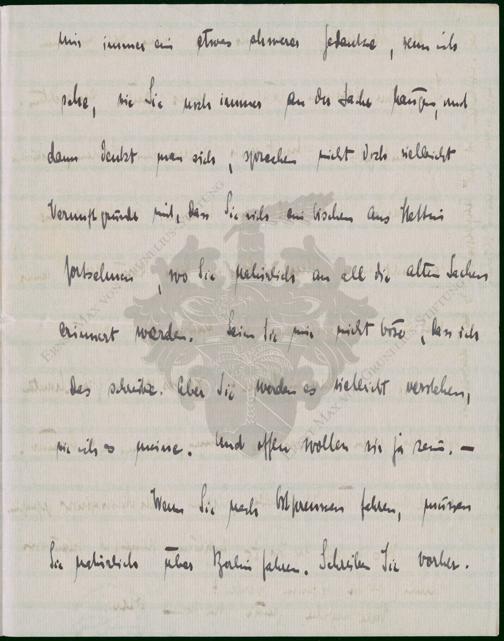 mir immer ein etwas schwerer Gedanke, wenn ich
sehe, wie Sie noch immer an der Sache hängen, und
dann denkt man sich, sprechen nicht doch vielleicht
Vernunftgründe mit, dass Sie sich ein bischen aus
fortsehnen, wo Sie natürlich an all die alten Sachen
erinnert werden. Seien Sie mir nicht böse, dass ich
das schreibe. Aber Sie werden es vielleicht verstehen,
wie ich es meine. Und offen wollen wir ja sein. —
Wenn Sie nach Ostpreussen fahren, müssen
Sie natürlich über Berlin fahren. Schreiben Sie vorher.
ERNST MAX VON GRUNELIUS-STIFTUNG
ERNST MAX VON GRUNELIUS-STIFTUNG